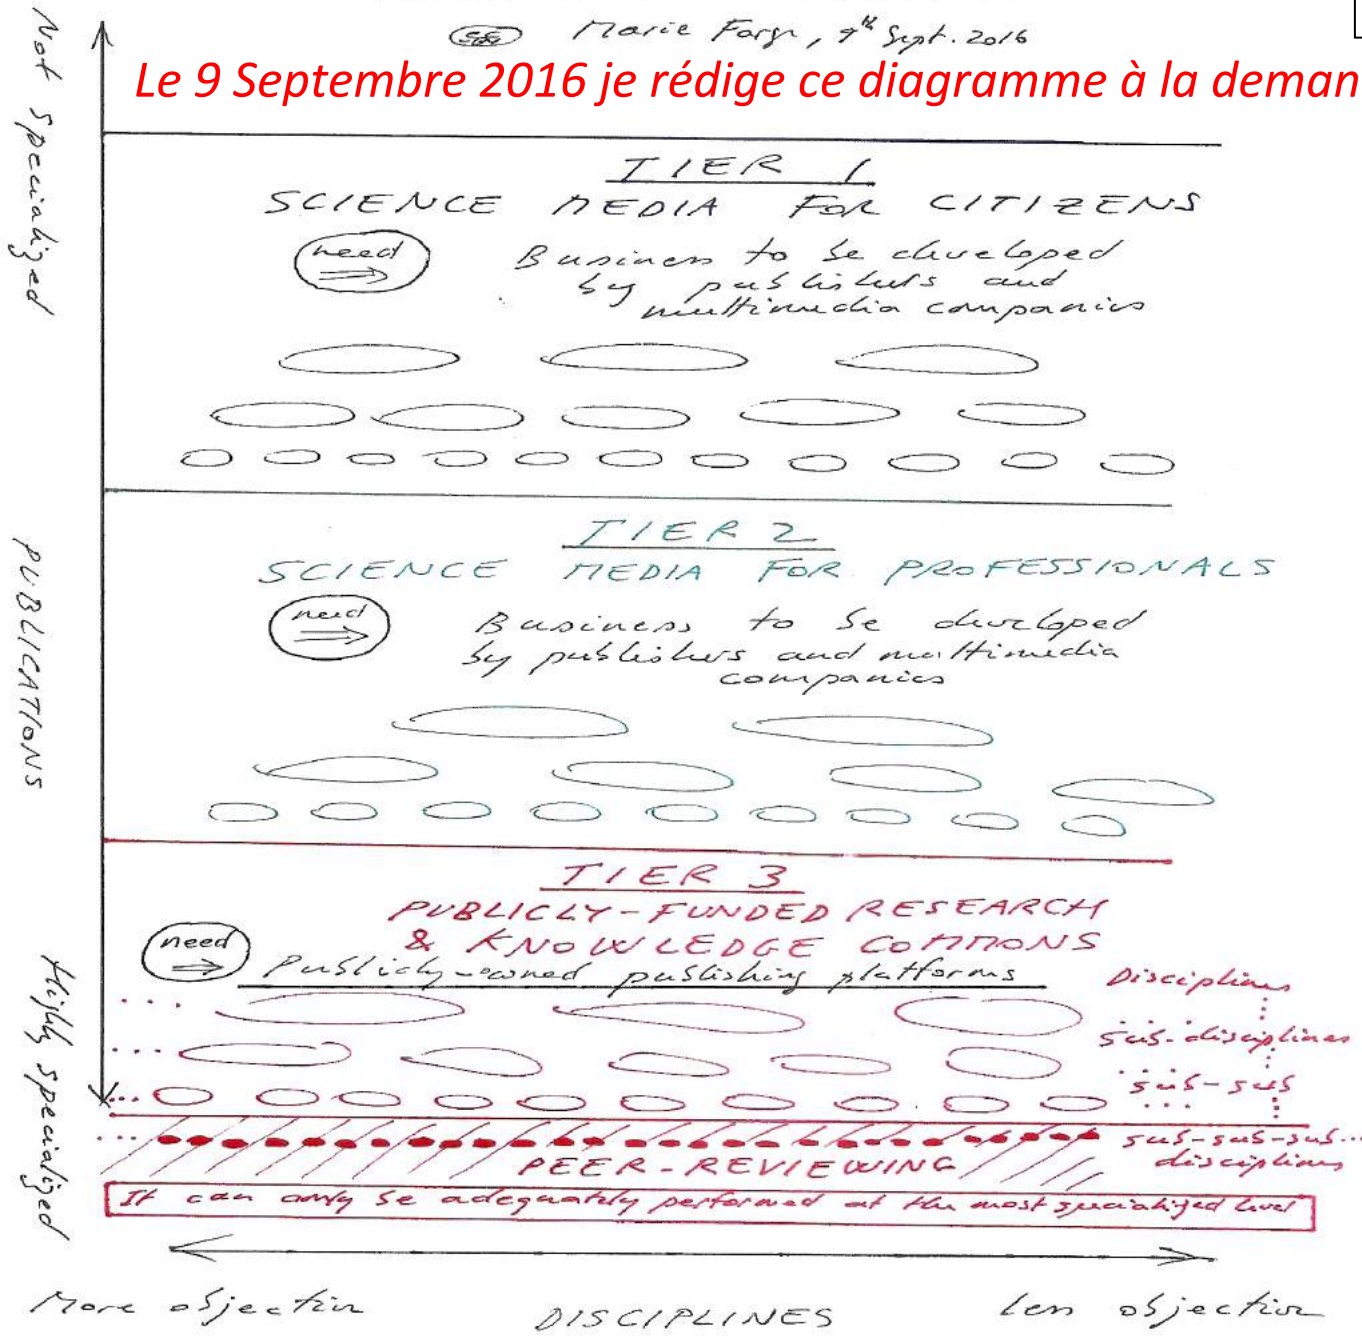 Marie Farge, 9th Sept. 2016
Le 9 Septembre 2016 je rédige ce diagramme à la deman
Not specialized
TIER 1
SCIENCE MEDIA FOR CITIZENS
need
Business to be developed
by publishers and
multimedia companies
PUBLICATIONS
TIER 2
SCIENCE MEDIA FOR PROFESSIONALS
need
Business to be developed
by publishers and multimedia
companies
Highly specialized
TIER 3
PUBLICLY-FUNDED RESEARCH
& KNOWLEDGE COMMONS
need
Publicly-owned publishing platforms
Disciplines
sub-disciplines
sub-sub
sub-sub-sub...
disciplines
PEER-REVIEWING
It can only be adequately performed at the most specialized level
More objective
DISCIPLINES
Less objective